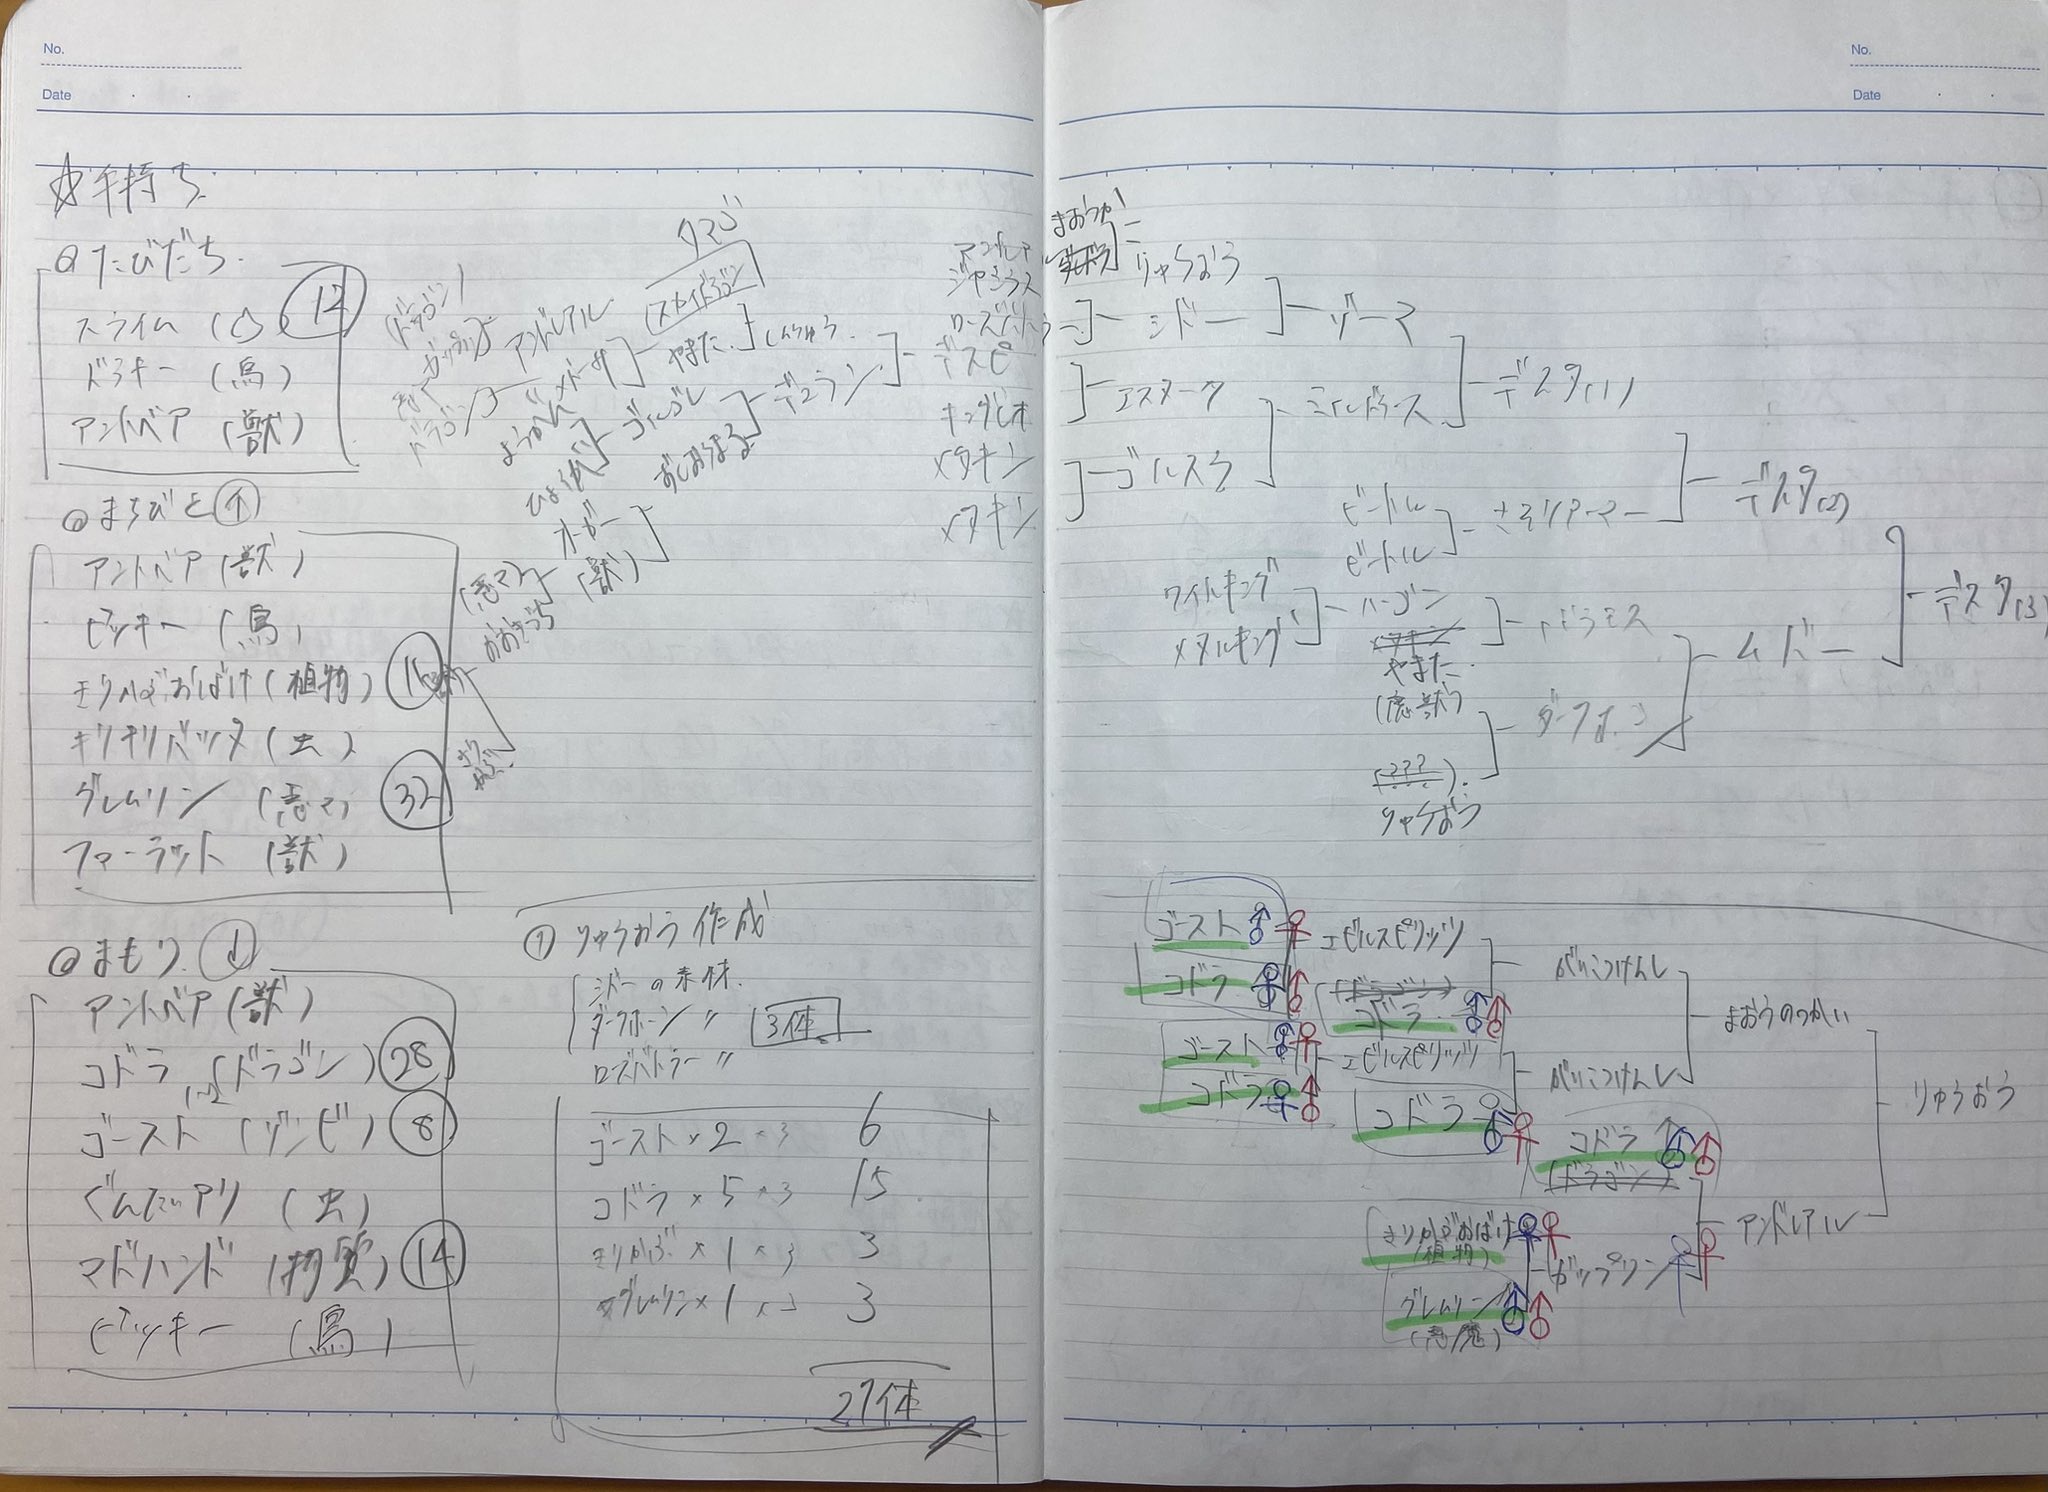 No.
Date
☆手持ち
@たびだち
スライム(
12
ドラキー (鳥)
アントベア (獣)
@まちびと 个
アントベア(獣)
ピッキー (鳥)
きりかぶおばけ(植物) 16
キリキリバッタ(虫)
グレムリン (悪マ) 32
ファーラット (獣)
@まもり ↓
アントベア(獣)
コドラ (ドラゴン) 28
ゴースト (ゾンビ) 8
ぐんたいアリ (虫)
マドハンド (物質) 14
ピッキー (鳥)
(ドラゴン)
ガップリン
ドラゴン
アンドレアル
メドーサ
タマゴ
(スカイドラゴン)
やまた
しんりゅう
ようがん
ひょうが
ゴールゴレ
オーガー
(獣)
(悪マ)
おおきづち
きりかぶ
デュラン
デスピ
キングレオ
メタキン
メタキン
① りゅうおう作成
シドーの素材
ダークホーン 〃 3体
ローズバトラー 〃
ゴースト×2 ×3 6
コドラ×5 ×3 15
きりかぶ×1 ×3 3
グレムリン×1 ×3 3
27体
No.
Date
アンドレアル
ジャミラス
ローズバトラ
まおうつか
りゅうおう
シドー
ゾーマ
エスターク
ゴールスラ
ミルドラース
デスタ(1)
ビートル
ビートル
さそりアーマー
デスタ(2)
ワイトキング
メタルキング
ハーゴン
メタキン
やまた
(魔獣)
バラモス
(???)
りゅうおう
ダークホーン
ムドー
デスタ(3)
ゴースト ♂ ♀
コドラ ♀ ♂
エビルスピリッツ
(ドラゴン)
コドラ ♂ ♂
がいこつけんし
ゴースト ♂ ♀
コドラ ♀ ♂
エビルスピリッツ
コドラ ♂ ♀
がいこつけんし
まおうのつかい
コドラ ♂ ♂
(ドラゴン)
りゅうおう
きりかぶおばけ ♀ ♀
(植物)
グレムリン ♂ ♂
(悪魔)
ガップリン ♀ ♀
アンドレアル